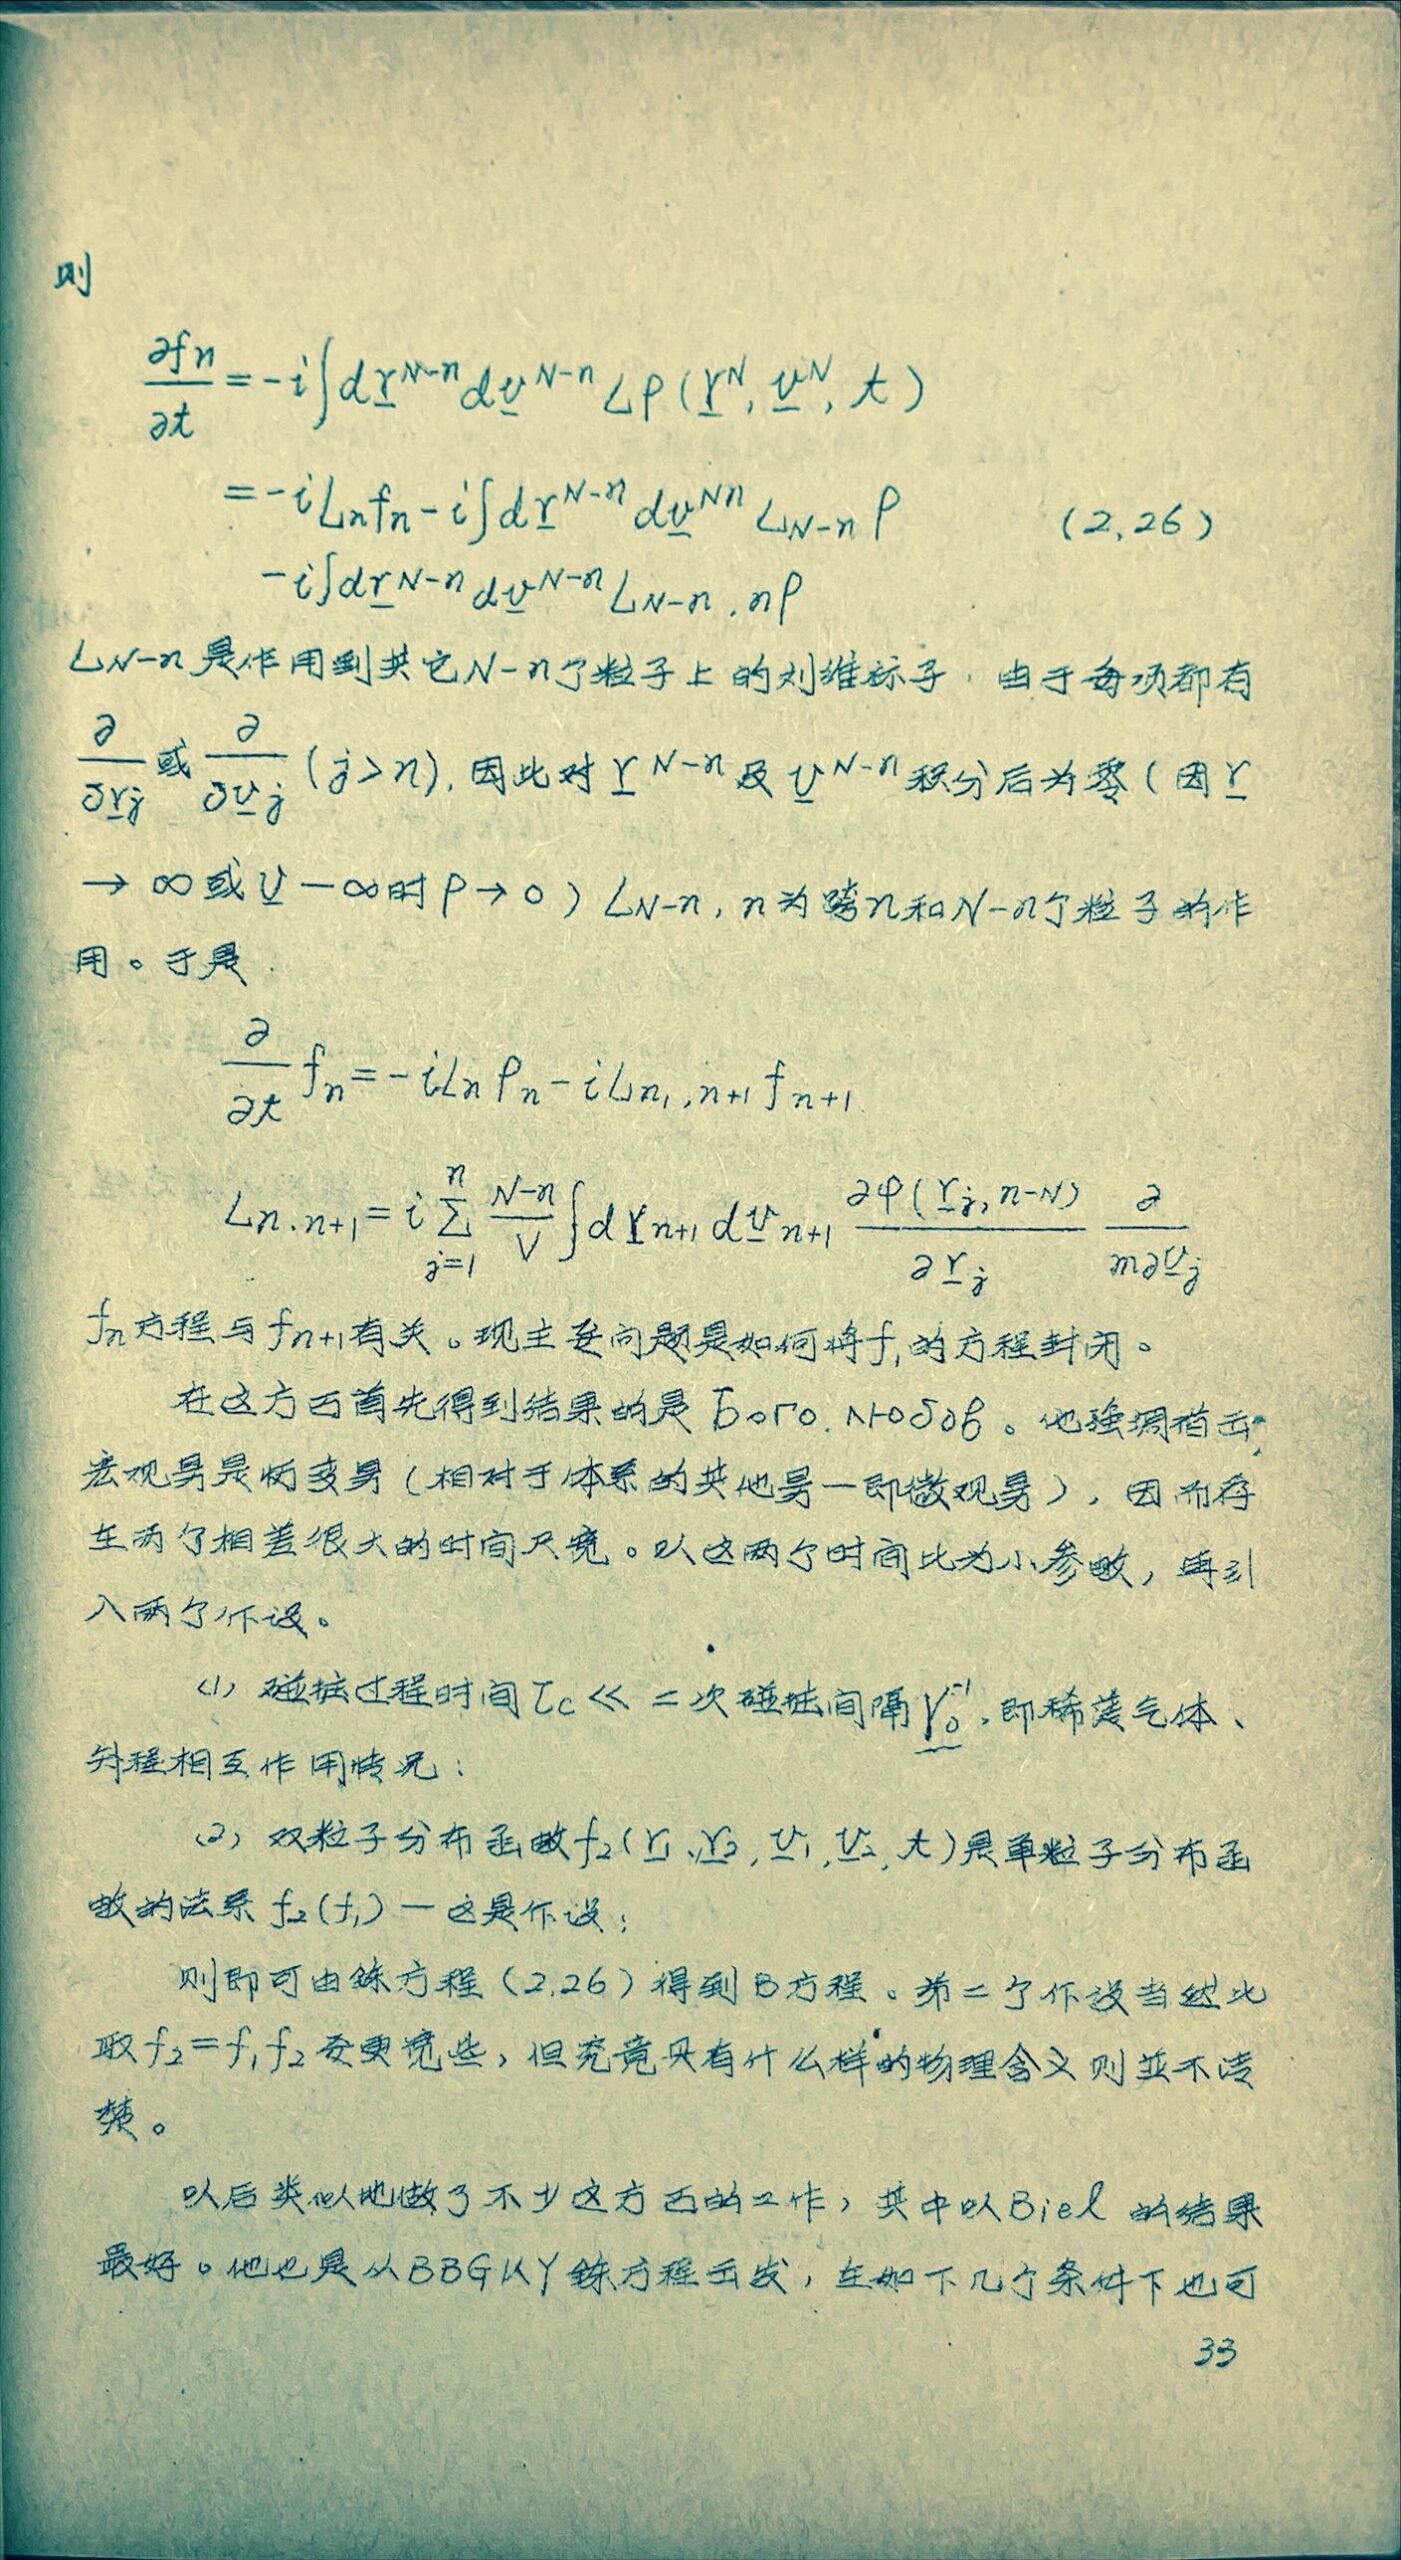 则
∂fn/∂t = -i∫dr^{N-n}dv^{N-n}Lρ(r^N, v^N, t)
= -iLnfn - i∫dr^{N-n}dv^{Nn}L_{N-n}ρ (2,26)
-i∫dr^{N-n}dv^{N-n}L_{N-n,n}ρ
L_{N-n}是作用到其它N-n个粒子上的刘维标子，由于每项都有
∂/∂r_j 或 ∂/∂v_j (j>n), 因此对r^{N-n}及v^{N-n}积分后为零(因r
→∞或v—∞时ρ→0) L_{N-n,n}为跨n和N-n个粒子的作
用。于是
∂/∂t fn = -iLnρn - iL_{n1,n+1}f_{n+1}
L_{n.n+1} = i Σ_{j=1}^{n} (N-n)/V ∫dr_{n+1}dv_{n+1} ∂φ(r_j,n-N)/∂r_j ∂/m∂v_j
fn方程与f_{n+1}有关。现主要问题是如何将f₁的方程封闭。
在这方面首先得到结果的是Бого.Nюбов。他强调指出
宏观量是慢变量(相对于体系的其他量—即微观量)，因而存
在两个相差很大的时间尺度。以这两个时间比为小参数，再引
入两个假设。
(1) 碰撞过程时间τc ≪ 二次碰撞间隔γ₀⁻¹，即稀薄气体、
短程相互作用情况：
(2) 双粒子分布函数f₂(r₁、r₂,v₁,v₂,t)是单粒子分布函
数的泛系f₂(f₁)—这是假设；
则即可由链方程(2,26)得到B方程。第二个假设当然比
取f₂=f₁f₂要更宽些，但究竟具有什么样的物理含义则並不清
楚。
以后类似地做了不少这方面的工作，其中以Biel的结果
最好。他也是从BBGKY链方程出发，在如下几个条件下也可
33